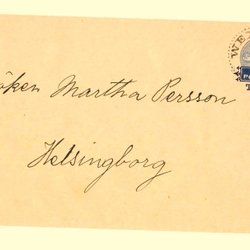 öken Martha Persson
Helsingborg